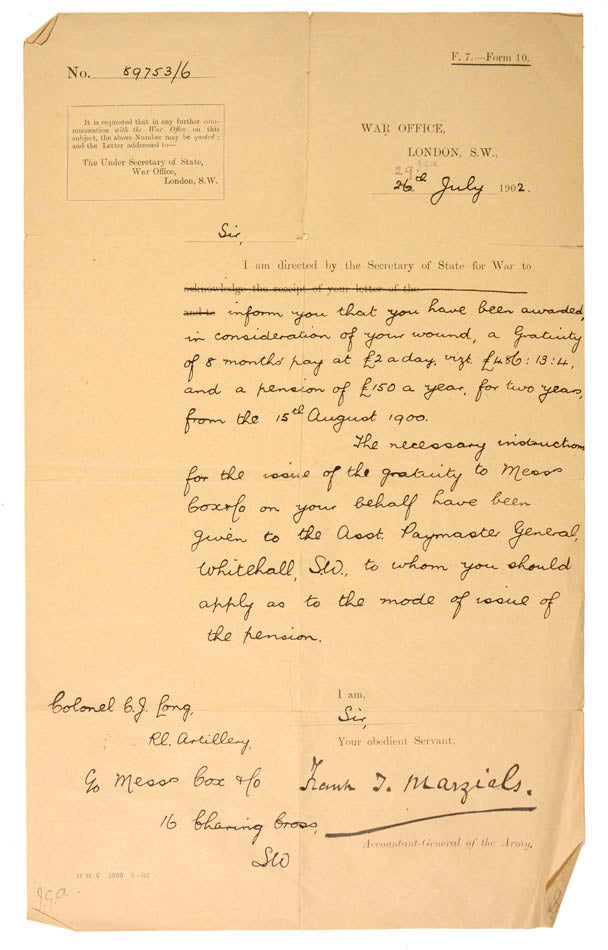 F. 7.—Form 10.
No. 89753/6
It is requested that in any further com-
munication with the War Office on this
subject, the above Number may be quoted;
and the Letter addressed to—
The Under Secretary of State,
War Office,
London, S.W.
WAR OFFICE,
LONDON, S.W.,
29 JGa
26th July 1902.
Sir,
I am directed by the Secretary of State for War to
acknowledge the receipt of your letter of the
and to inform you that you have been awarded,
in consideration of your wound, a Gratuity
of 8 months' pay at £2 a day, vizt. £486:13:4,
and a pension of £150 a year, for two years,
from the 15th August 1900.
The necessary instructions
for the issue of the gratuity to Messrs
Cox & Co on your behalf have been
given to the Asst. Paymaster General,
Whitehall, S.W., to whom you should
apply as to the mode of issue of
the pension.
I am,
Sir,
Your obedient Servant,
Frank T. Marzials.
Accountant-General of the Army.
Colonel C. J. Long,
Rl. Artillery,
c/o Messrs Cox & Co
16 Charing Cross,
SW
H W V 5000 3—02
J.G.a.